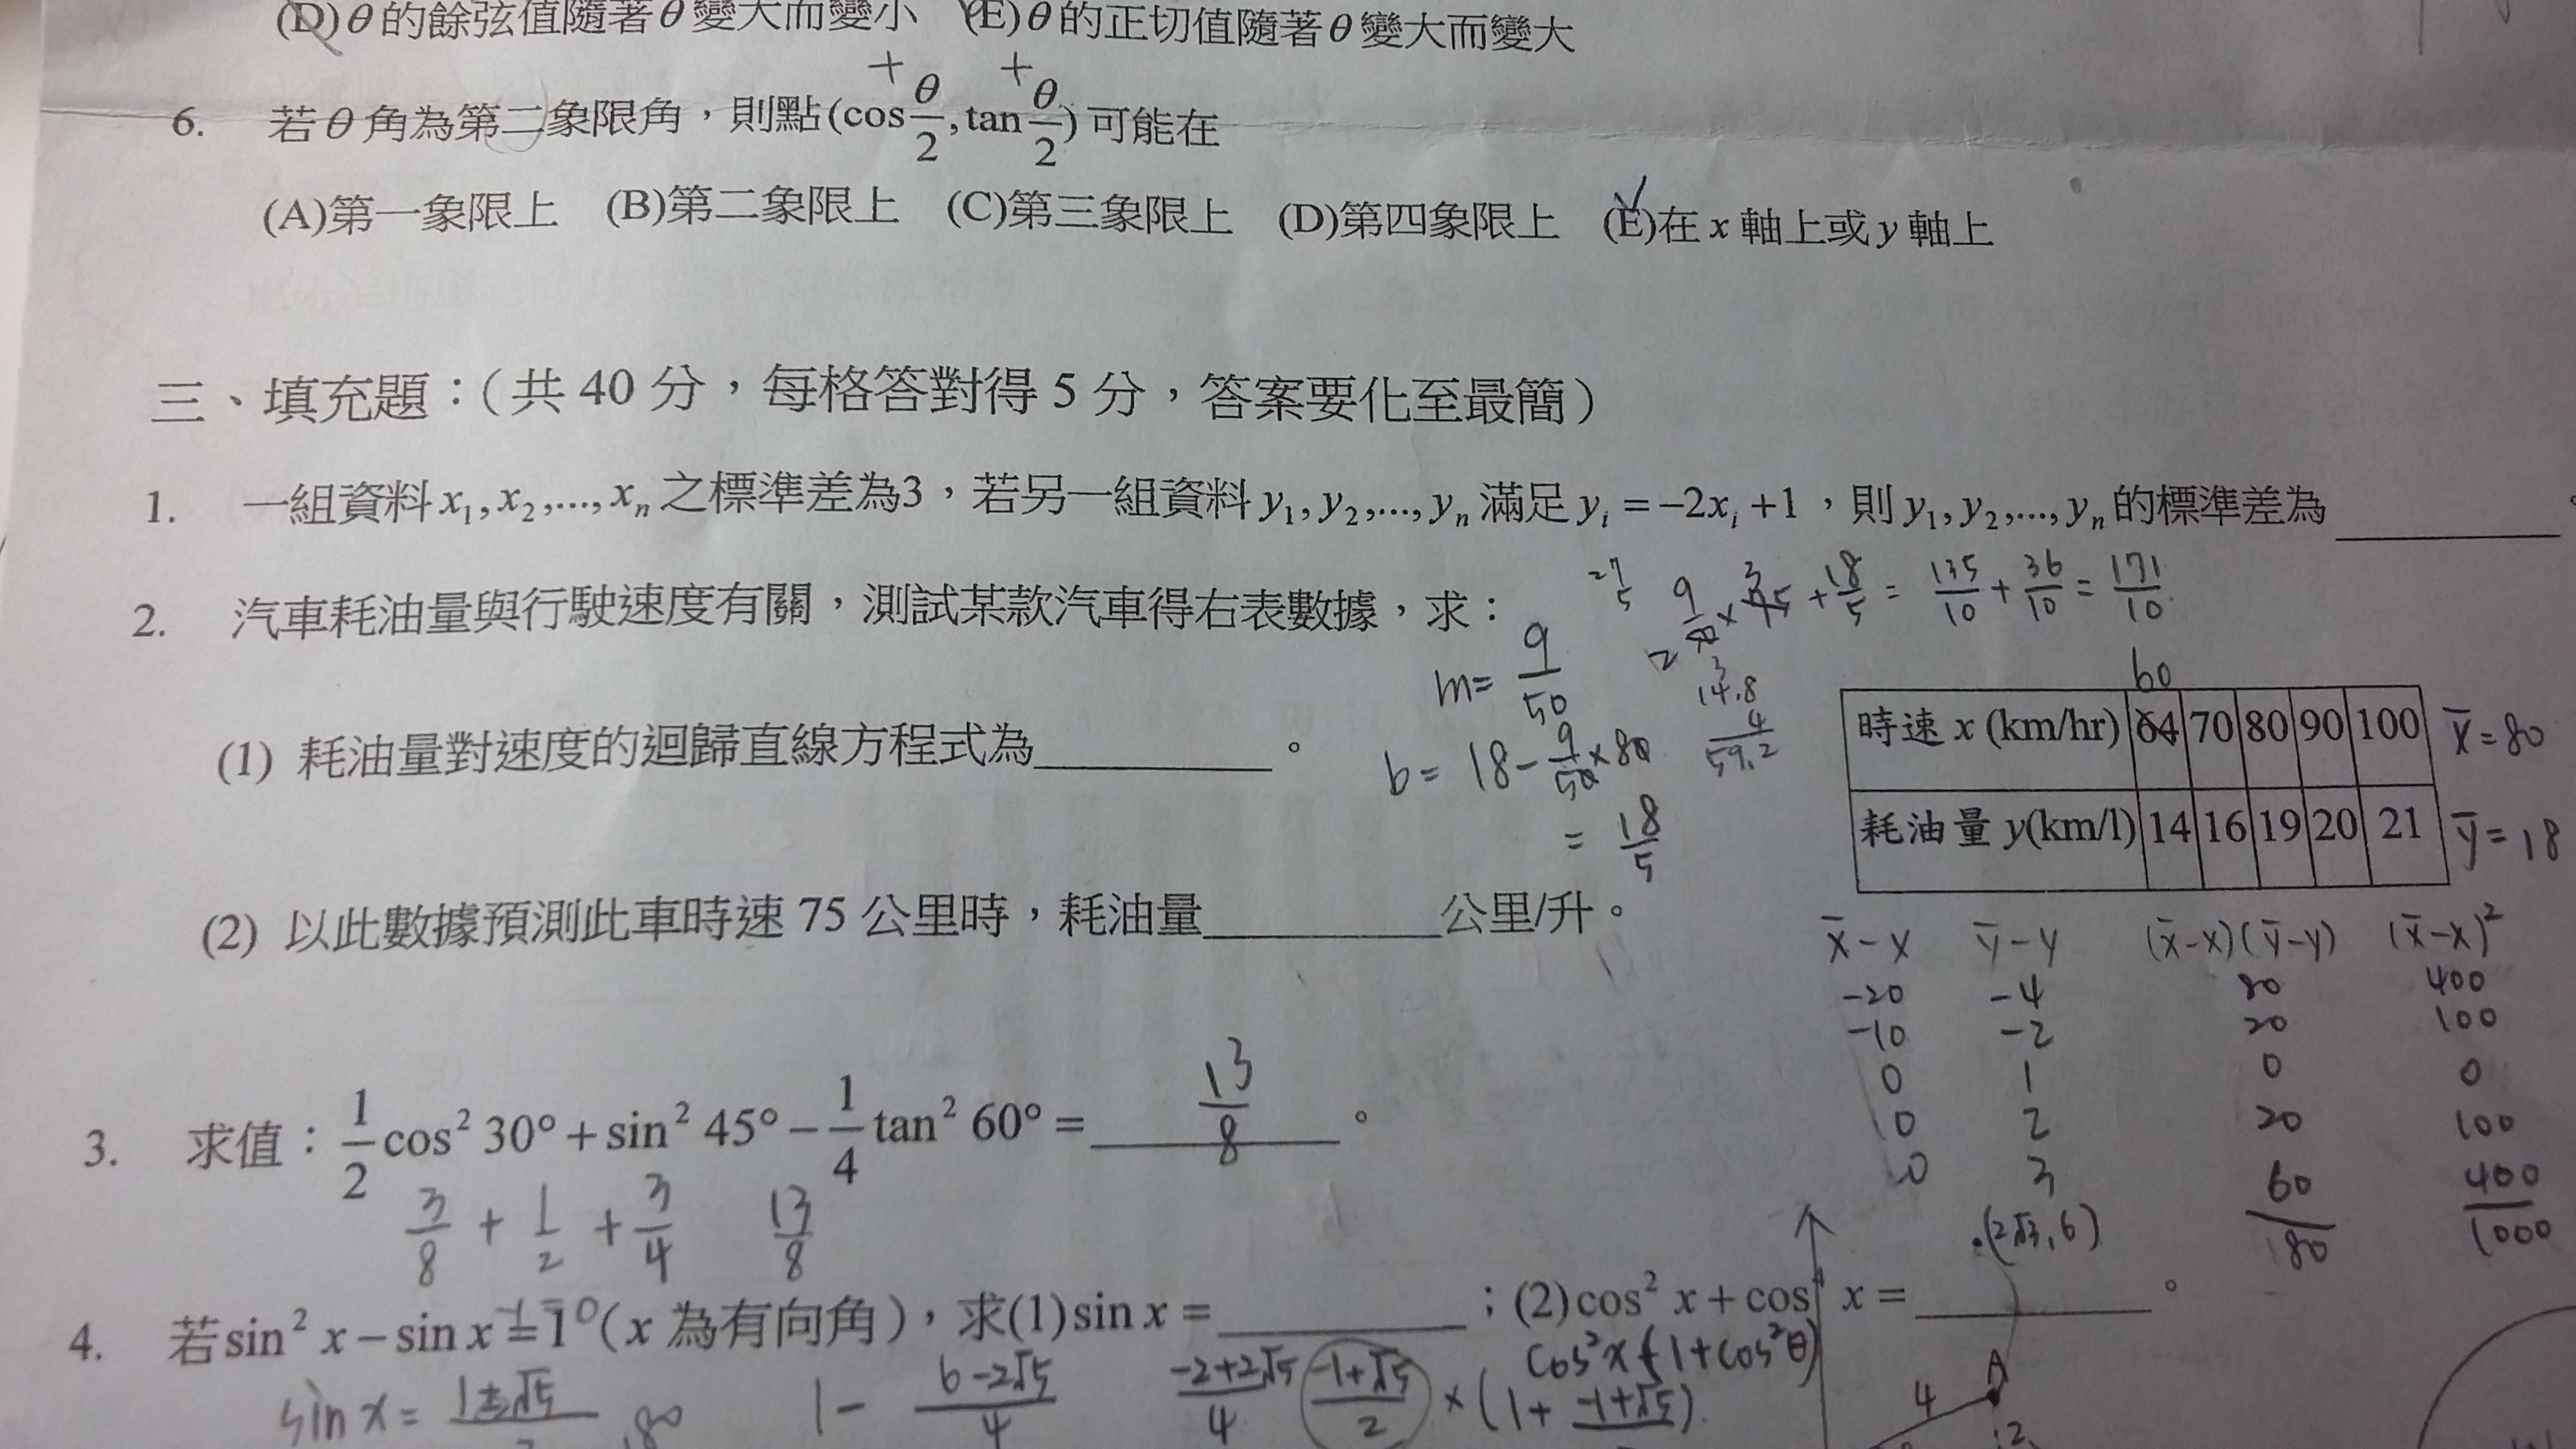 (D)θ的餘弦值隨著θ變大而變小 (E)θ的正切值隨著θ變大而變大
+ +
6. 若θ角為第二象限角，則點(cos θ/2, tan θ/2)可能在
(A)第一象限上 (B)第二象限上 (C)第三象限上 (D)第四象限上 (E)在 x 軸上或 y 軸上
三、填充題：（共 40 分，每格答對得 5 分，答案要化至最簡）
1. 一組資料 x₁, x₂,..., xₙ 之標準差為3，若另一組資料 y₁, y₂,..., yₙ 滿足 yᵢ = −2xᵢ +1，則 y₁, y₂,..., yₙ 的標準差為________。
27/5 9/50 × 75 + 18/5 = 135/10 + 36/10 = 171/10
2 3
2. 汽車耗油量與行駛速度有關，測試某款汽車得右表數據，求：
m= 9/50
14.8
4
59.2
60
時速 x (km/hr) 64 70 80 90 100 x̄=80
(1) 耗油量對速度的迴歸直線方程式為________。
b= 18 − 9/50 × 80
= 18/5
耗油量 y(km/l) 14 16 19 20 21 ȳ=18
(2) 以此數據預測此車時速 75 公里時，耗油量________公里/升。
x̄−x ȳ−y (x̄−x)(ȳ−y) (x̄−x)²
-20 -4 80 400
-10 -2 20 100
0 1 0 0
10 2 20 100
3 60 400
180 1000
3. 求值：1/2 cos² 30° + sin² 45° − 1/4 tan² 60° = 13/8。
3/8 + 1/2 + 3/4 13/8
.(2√3, 6)
4. 若sin² x − sin x = 1（x 為有向角），求(1)sin x =________；(2)cos² x + cos⁴ x =________。
-1=0
cos²x(1+cos²θ)
sin x = 1±√5
1 − 6−2√5/4 -2+2√5/4 -1+√5/2 × (1 + -1+√5)
80
4 A
2